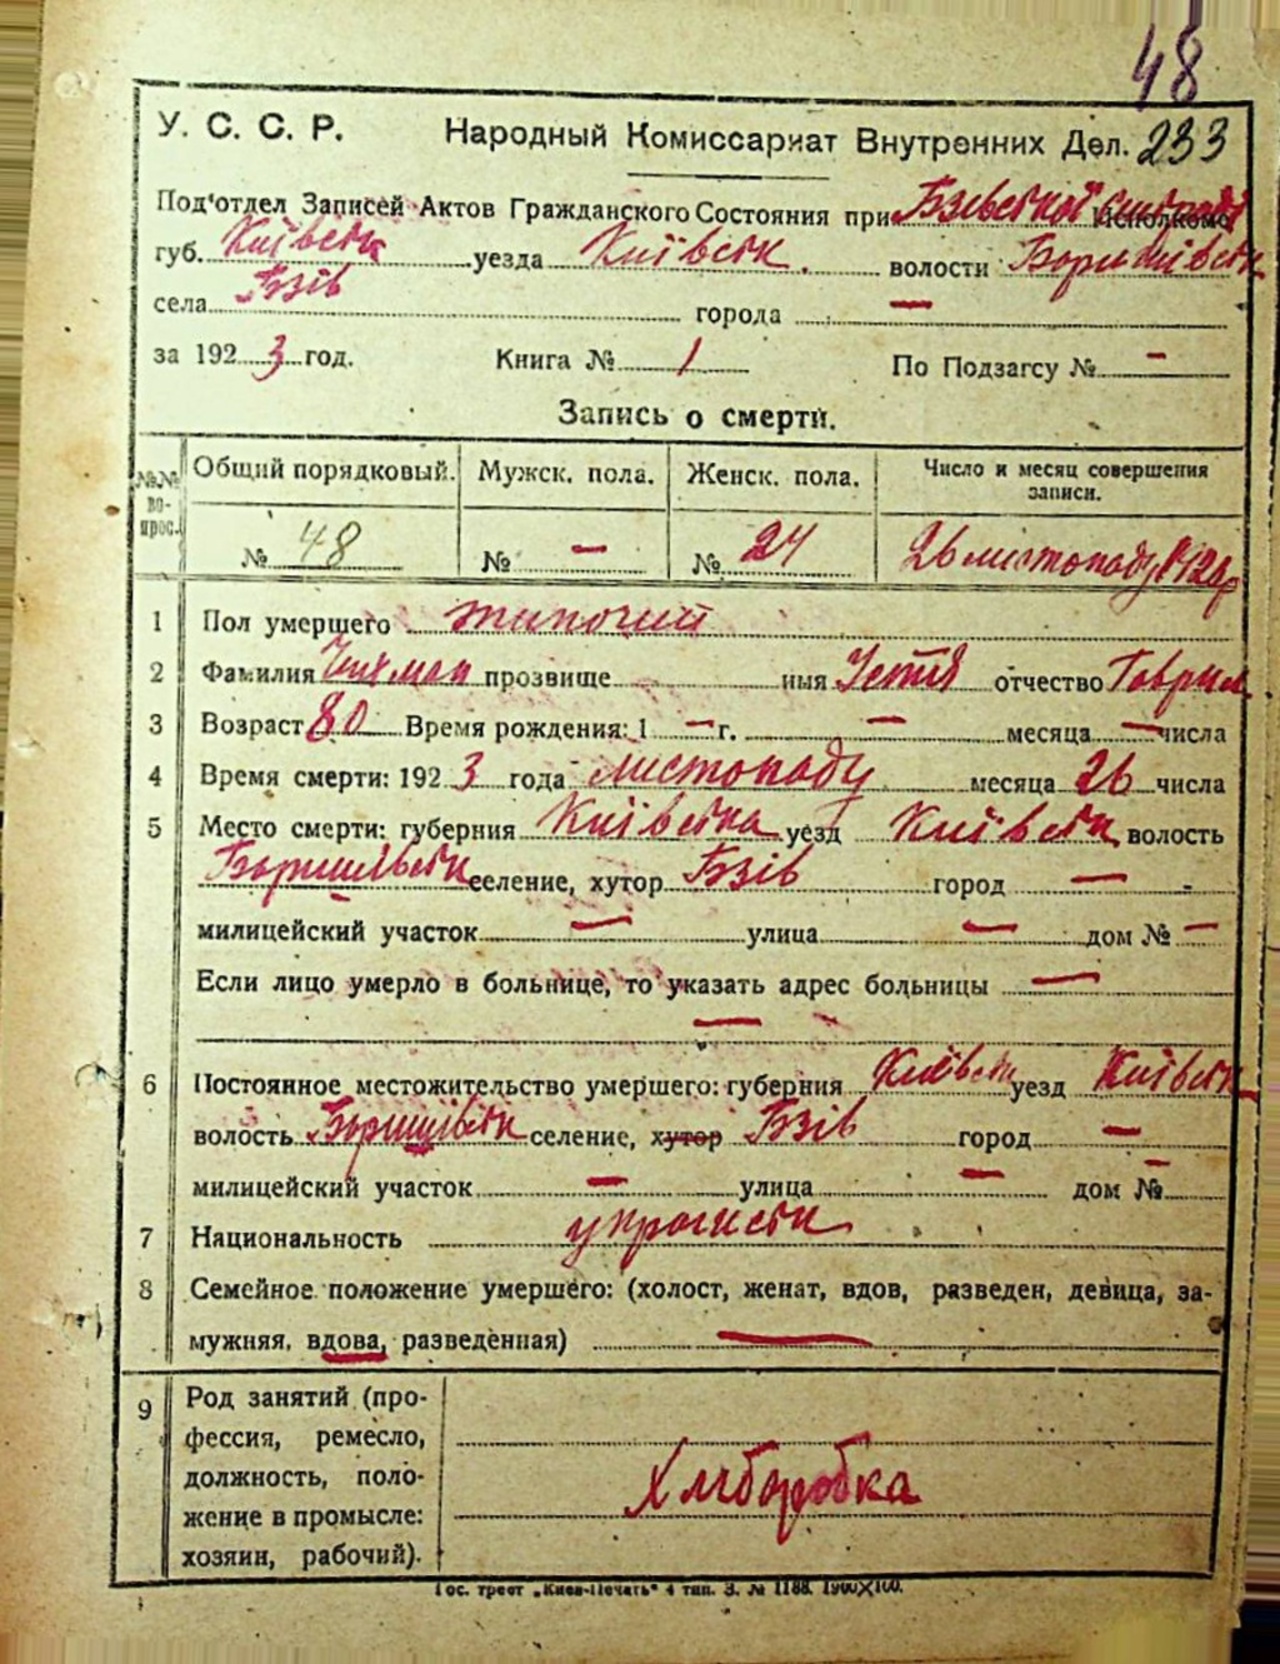 48
У. С. С. Р. Народный Комиссариат Внутренних Дел. 233
Под'отдел Записей Актов Гражданского Состояния при Бзівської Исполкоме
губ. Київськ уезда Київськ. волости
села Бзів города —
за 1923 год. Книга № 1 По Подзагсу № —
Запись о смерти.
№№ во-прос. Общий порядковый. Мужск. пола. Женск. пола. Число и месяц совершения записи.
№ 48 № — № 24 26 листопаду
1 Пол умершего жіночий
2 Фамилия прозвище имя Устя отчество Гаврил
3 Возраст 80 Время рождения: 1 — г. — месяца — числа
4 Время смерти: 1923 года листопаду месяца 26 числа
5 Место смерти: губерния Київська уезд Київськ волость
селение, хутор Бзів город —
милицейский участок — улица — дом № —
Если лицо умерло в больнице, то указать адрес больницы —
—
6 Постоянное местожительство умершего: губерния Київськ уезд Київськ
волость селение, хутор Бзів город —
милицейский участок — улица — дом № —
7 Национальность українськ
8 Семейное положение умершего: (холост, женат, вдов, разведен, девица, за-
мужняя, вдова, разведенная) —
9 Род занятий (про-
фессия, ремесло,
должность, поло-
жение в промысле:
хозяин, рабочий).
Хліборобка
Гос. трест „Киев-Печать" 4 тип. З. № 1188. 1900×100.